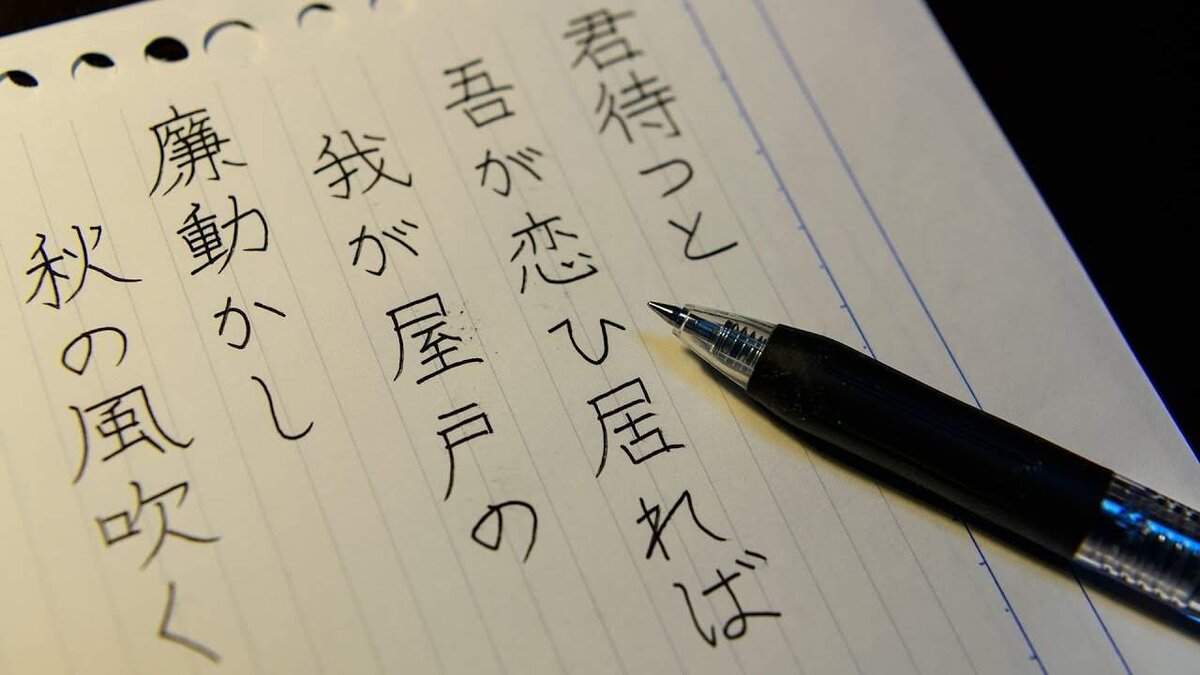 君待つと
吾が恋ひ居れば
我が屋戸の
廉動かし
秋の風吹く